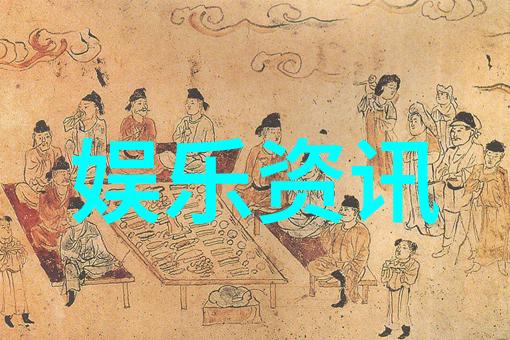 娱乐资讯